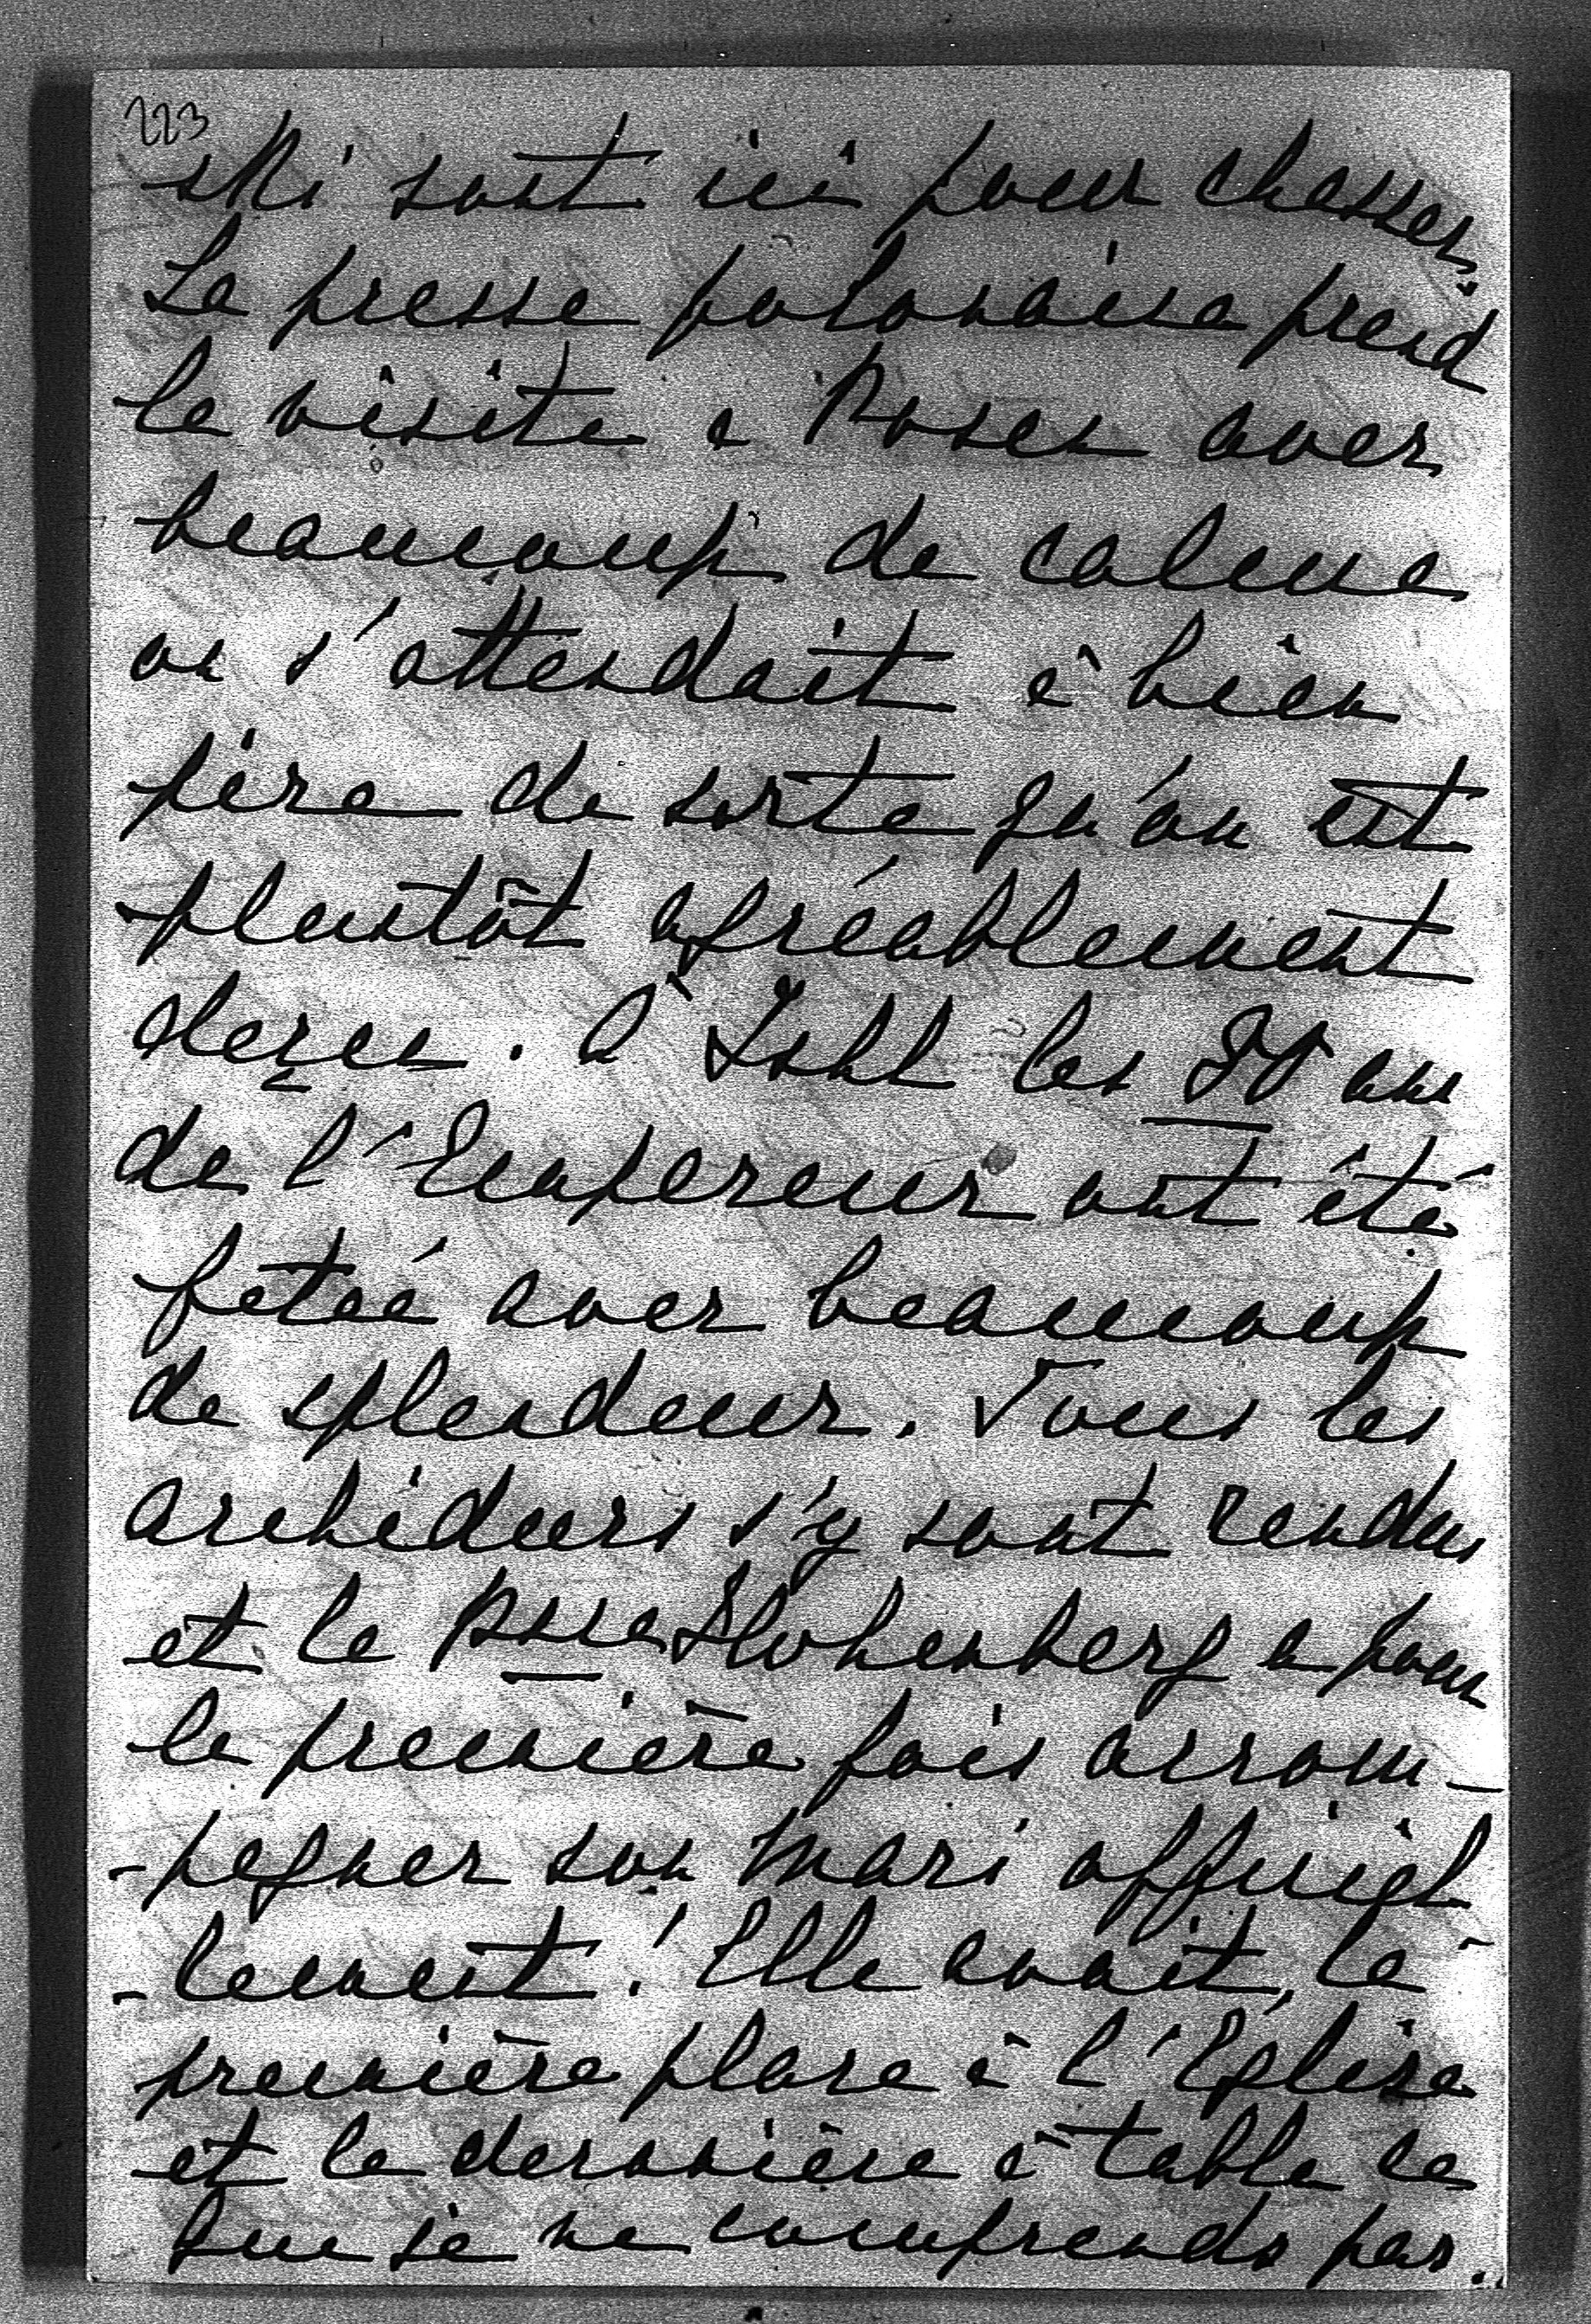 223
ski sont ici pour chasser.
La presse polonaise prend
la visite à Posen avec
beaucoup de calme
on s'attendait à bien
pire de sorte qu'on est
plustôt agréablement
deçu. À Ischl les 80 ans
de l'Empereur ont été
feteé avec beaucoup
de splendeur. Tous les
archiducs s'y sont rendus
et la Psse Hohenberg a pour
la première fois accom-
-pagner son mari officiel-
-lement! Elle avait la
première place à l'Eglise
et la dernière à table ce
que je ne comprends pas.